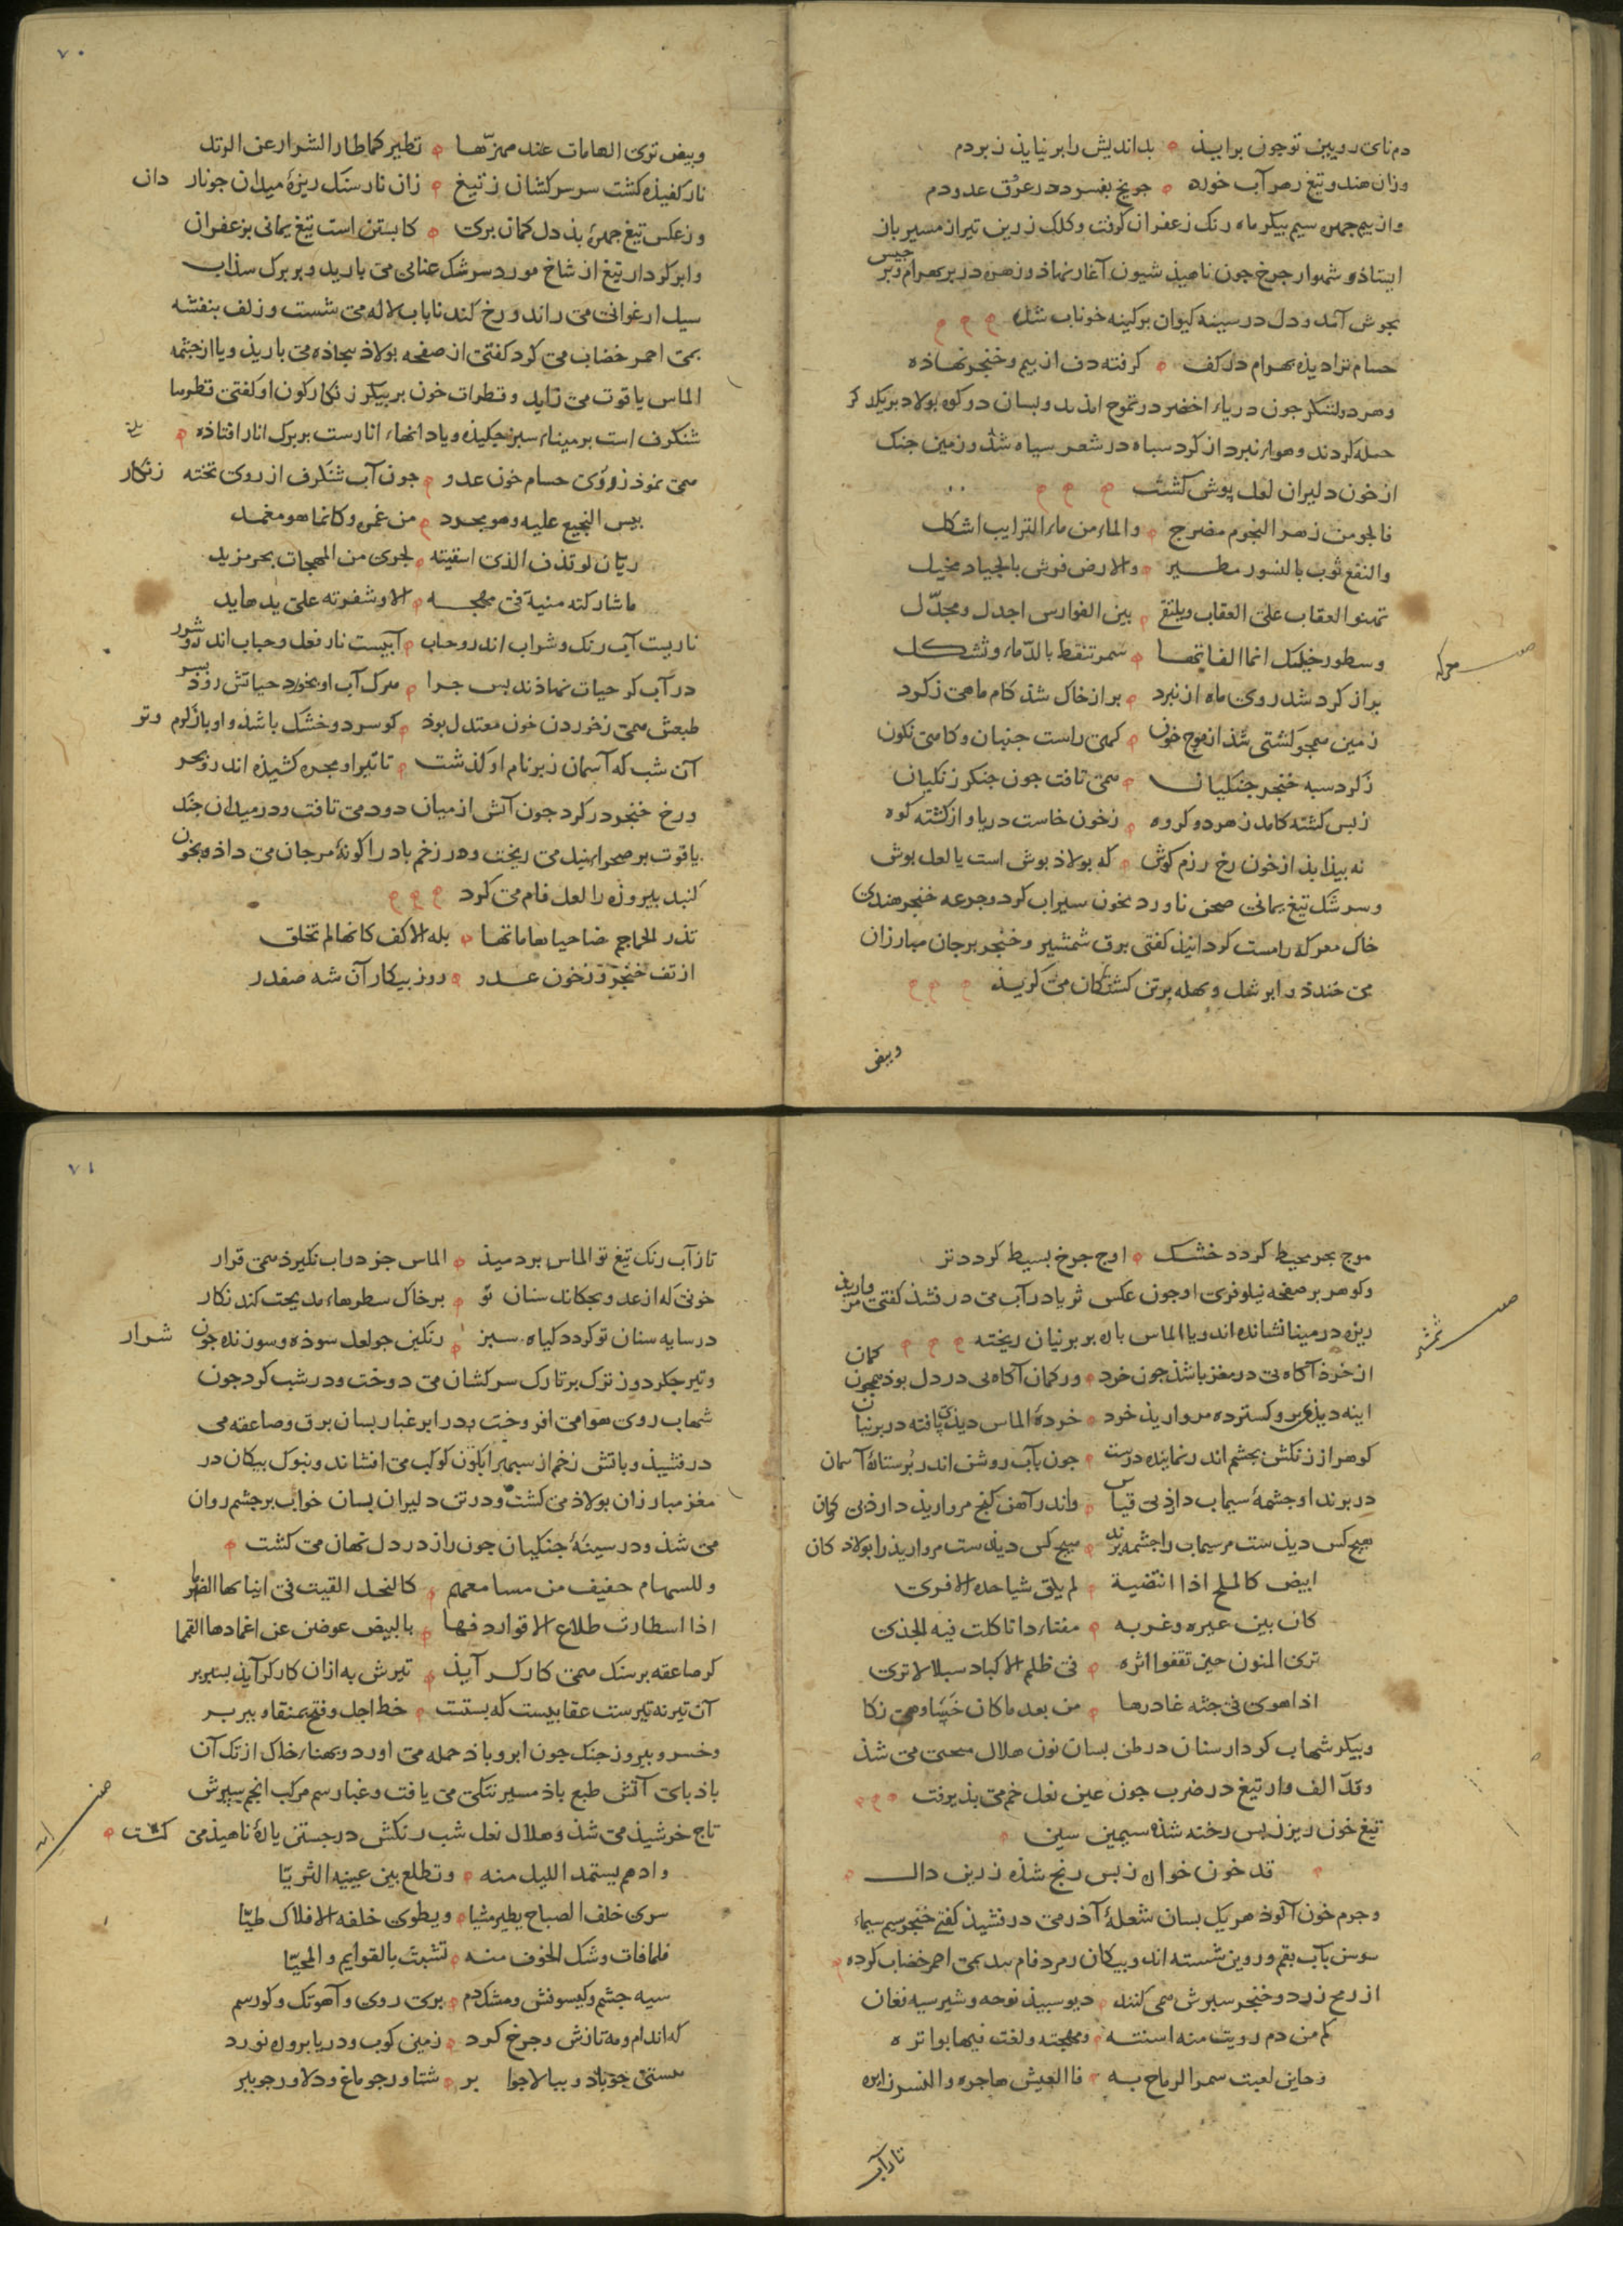 دم نای رویین تو چون برابیذ بداندیش را بر نیایذ ز بر دم
وزان هندو تیغ زهر آب خورد جو یخ بفسرد در عرق عدو دم
واز بیم جهره سیم بیکر ماه رنک زعفران کرفت وکلک زرین تیر از مسیر باز
ایستاذ و شهسوار جرخ جون ناهیذ شیون آغاز نهاذ و زهره در بر بهرام وبر جیس
بجوش آمد و دل در سینه کیوان بر کینه خوناب شد
حسام ترا دیذه بهرام در کف کرفته دف از بیم وخنجر نهاذه
وهر دو لشکر جون دریاء اخضر در تموج امذند وبسان دو کوه بولاد بر یکدکر
حمله کردند وهواء نبرد از کرد سباه در شعر سیاه شد وزمین جنک
از خون دلیران لعل پوش کشت
فالجو من زهر النجوم مضرج والماء من ماء الترایب اشکل
والنقع ثوب بالنسور مطیر والارض فرش بالجیاد مخیل
تهفو العقاب علی العقاب ویلتقی بین الفوارس اجدل ومجدّل
وسطور خیلک انما الفاتها سمر تنقط بالدّماء وتشکل
معرکه
بر از کرد شد روی ماه از نبرد بر از خاک شذ کام ماهی ز کرد
زمین همجو کشتی شذ از موج خون کهی راست جنبان و کاهی نکون
ز کرد سیه خنجر جنکیان همی تافت جون جنکر زنکیان
ز بس کشته کامد ز هر دو کروه ز خون خاست دریا و از کشته کوه
نه بیذا بذ از خون رخ رزم کوش که بولاذ بوش است یا لعل بوش
وسرشک تیغ یمانی صحن ناورد بخون سیراب کرد وجرعه خنجر هندی
خاک معرکه را مست کردانیذ کفتی برق شمشیر وخنجر بر جان مبارزان
می خندذ و ابر شل وبهله بر تن کشتکان می کریذ
وبیض
۷۰
وبیض تری الهامات عند ممرّها تطیر کما طار الشرار عن الزند
نار کفیذه کشت سر سرکشان ز تیغ زان نار سنک ریزهٔ میدان جو نار دان
وز عکس تیغ جهرهٔ بذ دل کمان بری کابستن است تیغ یمانی بزعفران
وابر کردار تیغ از شاخ مورد سرشک عنابی می بارید وبر برک سذاب
سیل ارغوانی می راند ورخ کندنا باب لاله می شست و زلف بنفشه
بمی احمر خضاب می کرد کفتی از صفحه بولاذ بیجاذه می باریذ ویا از جشمه
الماس یاقوت می زاید و قطرات خون بر بیکر زنکارکون او کفتی قطرها
شنکرف است بر میناء سبز جکیذه ویا دانهاء انارست بر برک انار افتاذه
همی نموذ ز روی حسام خون عدو جون آب شنکرف از روی تخته زنکار
یبس النجیع علیه وهو مجرد من غمده وکانما هو مغمد
ریّان لو قذف الذی اسقیته لجری من المهجات بحر مزبد
ما شارکته منیة فی مهجه الا وشفرته علی یدها ید
ناریست آب رنک وشراب اندرو حباب آبیست نار فعل وحباب اندرو شرر
در آب کر حیات نهاذند بس جرا مرک آب او بخورد حیاتش روذ بسر
طبعش همی ز خوردن خون معتدل بوذ کو سرد وخشک باشد واو باز کرم وتر
آن شب که آسمان ز بر نام او کذشت تا تیر او مجره کشیذه اند رو بحر
ورخ خنجر در کرد جون آتش از میان دود می تافت ودر میدان جنک
یاقوت بر صحراء نیل می ریخت وهر زخم باد را کونهٔ مرجان می داذ وبخون
کنبد بیروزه را لعل فام می کرد
تذر الجماجم ضاحیا هاماتها بله الاکف کانها لم تخلق
از تف خنجر و ز خون عدو روز بیکار آن شه صفدر
موج بحر محیط کردد خشک اوج جرخ بسیط کردد تر
وکوهر بر صفحه نیلوفری او جون عکس ثریا در آب می درفشذ کفتی مروارید
ریزه در مینا نشانده اند ویا الماس باره بر برنیان ریخته
شمشیر
از خرذ آکاه نی در مغز باشذ جون خرد ور کمان آکاه نی در دل بوذ همجون کمان
اینه دیذی برو کسترده مروارید خرد خردهٔ الماس دیذی بافته در برنیان
کوهر از رنکش بجشم اندر نماینده درست جون بآب روشن اندر بُر ستارهٔ آسمان
در برند او جشمهٔ سیماب دارذ بی قیاس واندر آهن کنج مروارید دارذ بی کمان
هیچ کس دیذست مر سیماب را جشمه برند هیچ کس دیذست مروارید را بولاد کان
ابیض کالملح اذا انتضیته لم یلق شیا حده الا فری
کان بین عیره وغربه مفتاءدا تاکلت فیه الجذی
تری المنون حین تقفوا اثره فی ظلم الاکباد سبلا لا تری
اذا هوی فی جثه غادرها من بعد ما کان خسا وهی زکا
وبیکر شهاب کردار سنان در طن بسان نون هلال منحنی می شذ
وقدّ الف وار تیغ در ضرب جون عین نعل خم می بذیرفت
تیغ خون ریز ز بس رخنه شذه سیمین سین
قد خون خواره ز بس رنج شذه زرین دال
وجرم خون آلوذ هر یک بسان شعلهٔ آذر می درفشیذ کفتی خنجر سیم سیماء
سوسن بآب بقم ورزین شسته اند وبیکان زمرد فام بید بمی احمر خضاب کرده
از رمح زرد وخنجر سبزش همی کنند دیو سبیذ نوحه وشیر سیه فغان
کم من دم رویت منه اسنته ومهجته ولغت فیها بواتره
وحاین لعبت سمر الرماح به فالعیش هاجره والنسر زایره
تا زآب
۷۱
تا زآب رنک تیغ تو الماس بردمیذ الماس جز در اب نکیرذ همی قرار
خونی که از عدو بجکاند سنان تو بر خاک سطرهاء مدیحت کند نکار
در سایه سنان تو کردد کیاه سبز رنکین جو لعل سوذه وسوزنده جون شرار
وتیر جکر دوز ترک بر تارک سرکشان می دوخت ودر شب کرد جون
شهاب روی هوا می افروخت ودر ابر غبار بسان برق وصاعقه می
درفشیذ وبآتش زخم از سبهر آبکون کوکب می افشاند وبنوک بیکان در
مغز مبارزان بولاذ می کشت ودر تن دلیران بسان خواب بر جشم روان
می شذ ودر سینهٔ جنکیان جون راز در دل نهان می کشت
وللسهام حفیف من مسامعهم کالنحل القیت فی ابیاتها الضرر
اذا استطارت طلاع الافق اردفها بالبیض عوضن عن اغمادها القمما
کر صاعقه بر سنک همی کارکر آیذ تیرش به ازان کارکر آیذ بسبر بر
آن تیر نه تیرست عقابیست که بستست خط اجل وفتح بمنقار وببر بر
وخسرو بیروز جنک جون ابر وباذ حمله می اورد وبهناء خاک از تک آن
باذبای آتش طبع باذ مسیر تنکی می یافت وغبار سم مرکب انجم سیرش
تاج خرشیذ می شذ وهلال نعل شب رنکش در جستن یارهٔ ناهیذ می کشت
وادهم یستمد اللیل منه وتطلع بین عینیه الثریّا
سری خلف الصباح یطیر مشیا ویطوی خلفه الافلاک طیّا
فلما فات وشک الخوف منه تشبث بالقوایم والمحیّا
سیه جشم وکیسوفش ومشک دم بری روی و آهوتک وکورسم
که اندام ومه تازش وجرخ کرد زمین کوب ودریا بر وره نورد
بستی جو باذ وببالا جو ابر شناور جو ماغ ودلاور جو ببر